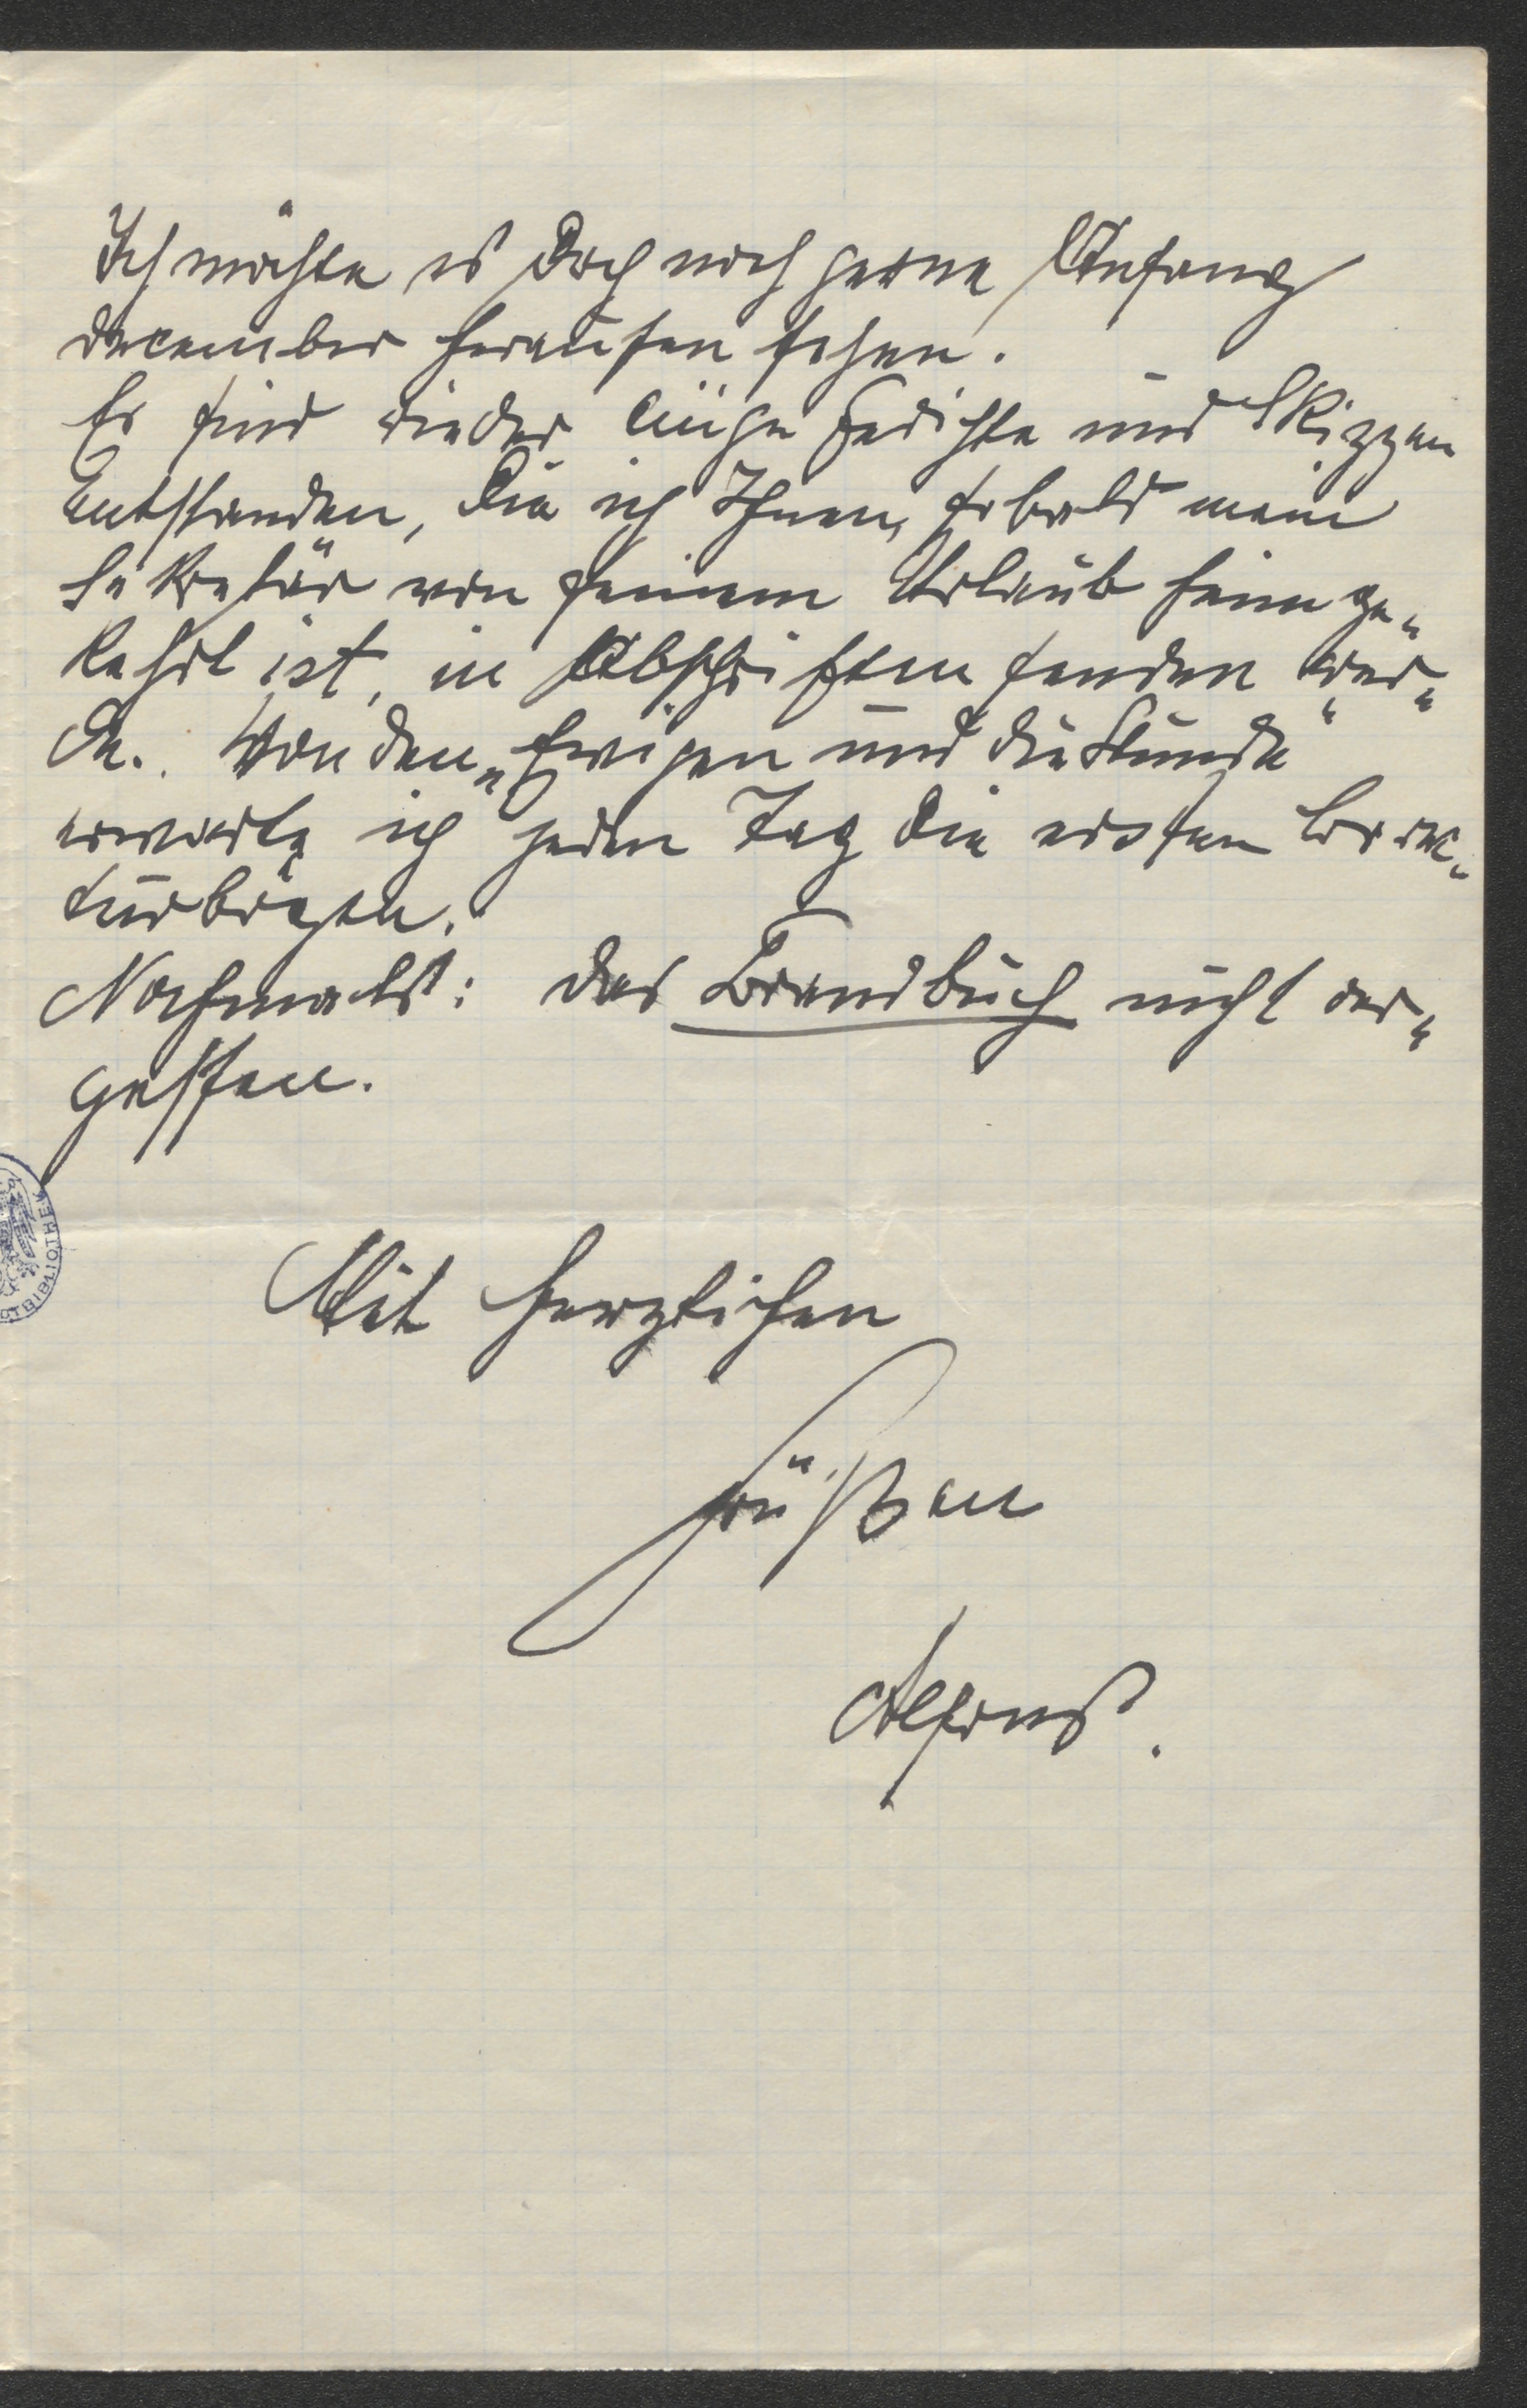 Ich möchte es doch noch gerne Anfang
December heraußen sehen.
Es sind wieder einige Gedichte und Skizzen
entstanden, die ich Ihnen, sobald mein
Sekretär von seinem Urlaub heimge„
kehrt ist, in Abschriften senden wer„
de. Von den „Ewigen und die Stunde“
erwarte ich jeden Tag die ersten Correc„
turbögen.
Nochmals: das Brandbuch nicht ver„
gessen.
TBIBLIOTHEK
Mit herzlichen
Grüßen
Alfons.